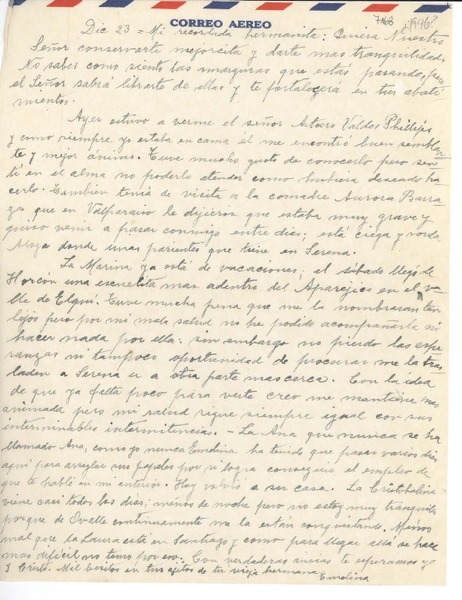 CORREO AEREO
Dic 23 = Mi recordada hermanita: Quiera Nuestro
Señor conservarte mejorcita y darte mas tranquilidad.
No saber como siento las amarguras que estás pasando, pero
el Señor sabrá librarte de ellas y te fortalecerá en tus abati
mientos.
Ayer estuvo a verme el señor Arturo Valdes Phillips
y como siempre ya estaba en cama él me encontró buen semblan
te y mejor ánimo. Tuve mucho gusto de conocerlo pero sen
tí en el alma no poderlo atender como hubiera deseado ha
cerlo. Tambien tenía de visita a la comadre Aurora Barra
za que en Valparaiso le dijeron que estaba muy grave y
quiso venir a pasar conmigo entre dias; está ciega y sorda
aloja donde unas parientes que tiene en Serena.
La Marina ya está de vacaciones; el sábado llegó de
Horcón una escuelita mas adentro del Aparejico en el va
lle de Elqui. Tuve mucha pena que me la nombraran tan
lejos pero por mi mala salud no he podido acompañarla ni
hacer nada por ella: sin embargo no pierdo las espe
ranzas ni tampoco oportunidad de procurar me la tras
laden a Serena u a otra parte mas cerca. Con la idea
de que ya falta poco para verte creo me mantiene mas
animada pero mi salud sigue siempre igual con sus
interminables intermitencias. - La Ana que nunca se ha
llamado Ana, como yo nunca Emelina ha tenido que pasar varios dias
aquí para arreglar sus papeles por si logra conseguir el empleo de
que te hablé en mi anterior. Hoy volvió a su casa. La Cristobalina
viene casi todos los dias; menos de noche pero no estoy muy tranquila
porque de Ovalle continuamente me la están conquistando. Menos
mal que la Laura esté en Santiago y como para llegar allá se hace
mas difícil no temo por eso. Con verdaderas ansias te esperamos yo
y Cristo. Mil besitos en tus ojitos de tu vieja hermana Emelina